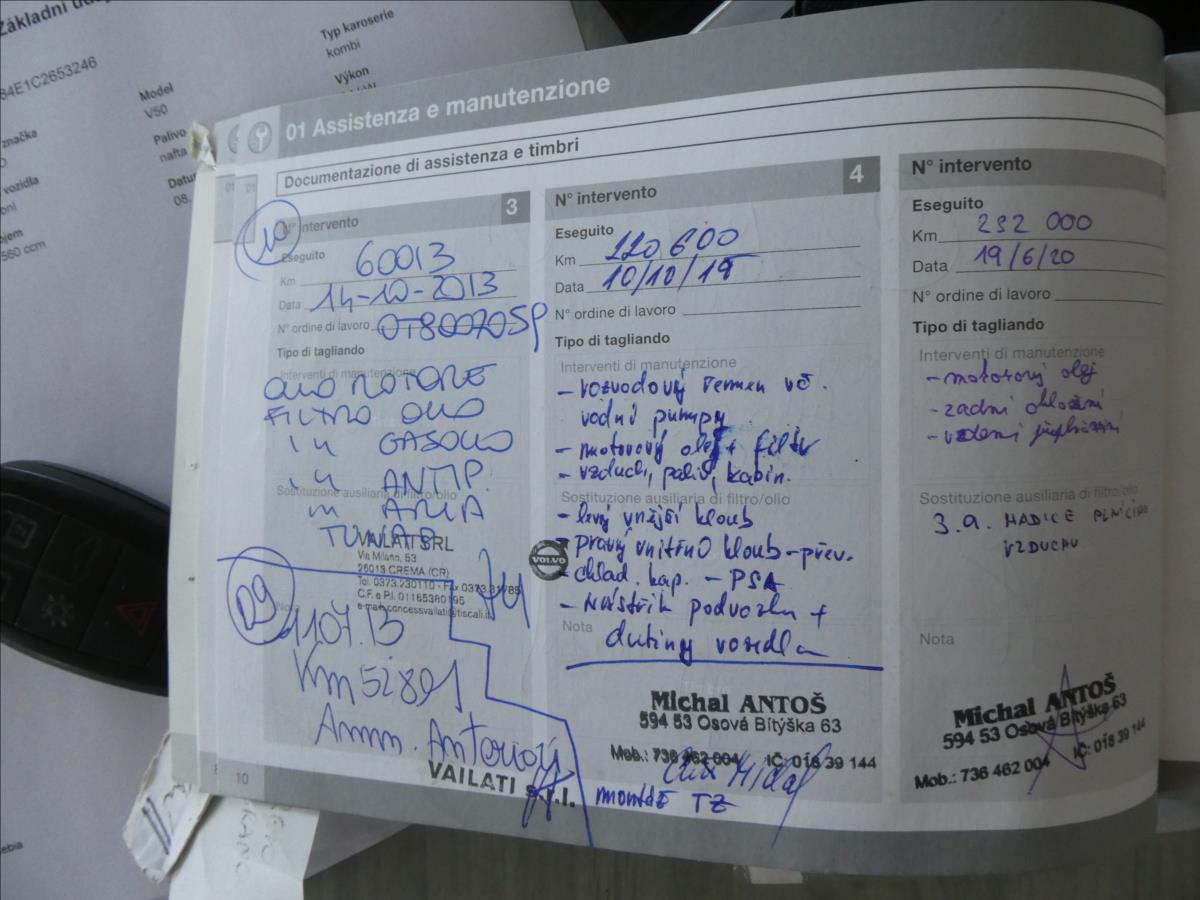 Základní úd
84E1C2653246
Typ karoserie
kombi
Výkon
Model
V50
značka
Palivo
nafta
vozidla
Datu
08.
jem
560 ccm
01 Assistenza e manutenzione
Documentazione di assistenza e timbri
10
N° intervento 3
Eseguito
Km 60013
Data 14-10-2013
N° ordine di lavoro OT800705P
Tipo di tagliando
Interventi di manutenzione
OLIO MOTORE
FILTRO OLIO
GASOLIO
ANTIP.
ARIA
Sostituzione ausiliaria di filtro/olio
VAILATI SRL
Via Milano, 53
26013 CREMA (CR)
Tel. 0373.230110 - Fax 0373.31785
C.F. e P.I. 01165380195
e-mail: concessvailati@tiscali.it
Nota
09
1107.13
Km 52891
VAILATI s.r.l.
10
N° intervento 4
Eseguito
Km 220 600
Data 10/10/18
N° ordine di lavoro
Tipo di tagliando
Interventi di manutenzione
- rozvodový řemen vč.
vodní pumpy
- motorový olej + filtr
- vzduch, paliv, kabin.
Sostituzione ausiliaria di filtro/olio
- levý vnější kloub
VOLVO
- pravý vnitřní kloub - přev.
- chlad. kap. - PSA
- Nástřik podvozku +
Nota dutiny vozidla
Michal ANTOŠ
594 53 Osová Bítýška 63
Mob.: 736 462 004 IČ: 018 39 144
montáž TZ
N° intervento
Eseguito
Km 232 000
Data 19/6/20
N° ordine di lavoro
Tipo di tagliando
Interventi di manutenzione
- motorový olej
- zadní
Sostituzione ausiliaria di filtro/olio
3.a. HADICE PLNÍCÍHO
VZDUCHU
Nota
Michal ANTOŠ
594 53 Osová Bítýška 63
Mob.: 736 462 004 IČ: 018 39 144